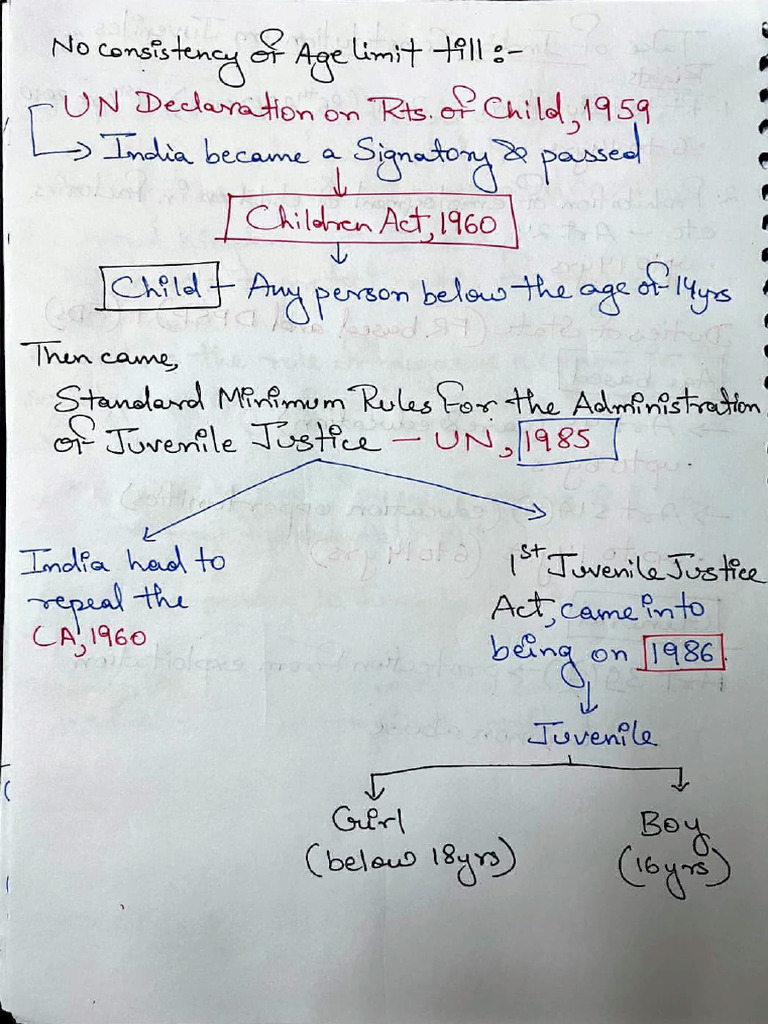 No consistency of Age limit till :-
UN Declaration on Rts. of Child, 1959
India became a Signatory & passed
Children Act, 1960
Child - Any person below the age of 14yrs
Then came,
Standard Minimum Rules for the Administration
of Juvenile Justice - UN, 1985
India had to
repeal the
CA, 1960
1st Juvenile Justice
Act, came into
being on 1986.
Juvenile
Girl
(below 18yrs)
Boy
(16yrs)